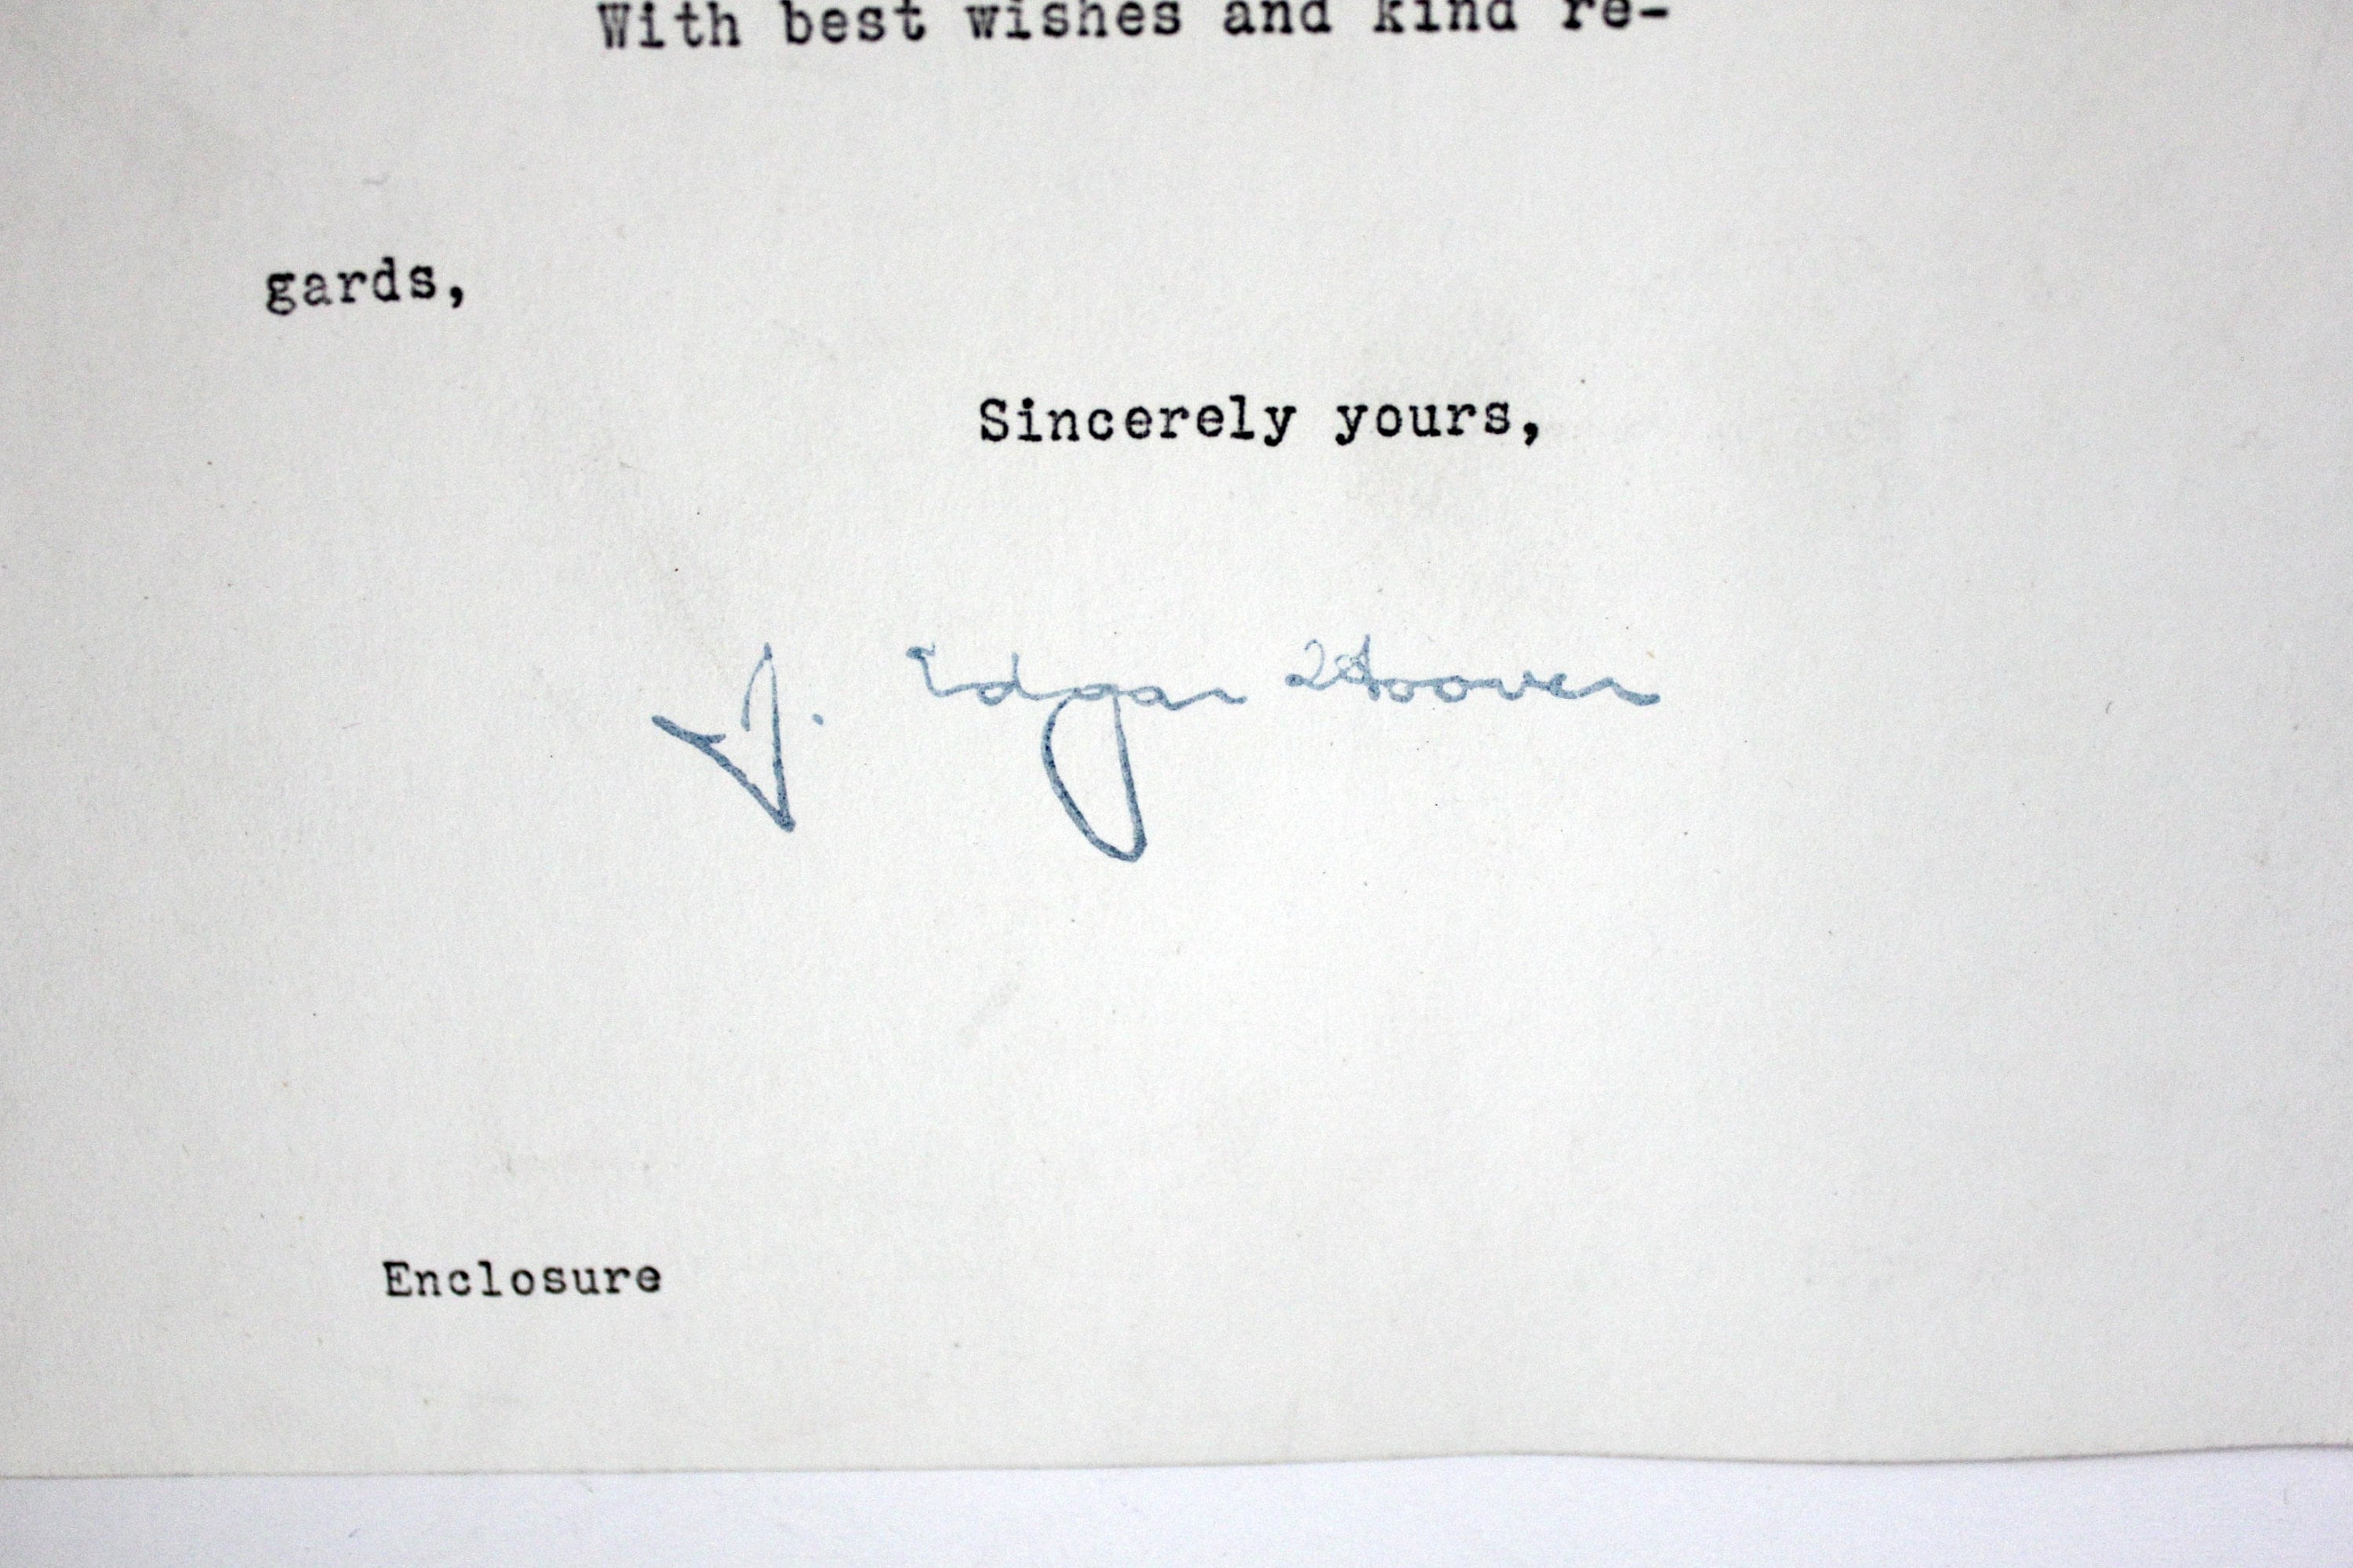 With best wishes and kind re-
gards,
Sincerely yours,
J. Edgar Hoover
Enclosure